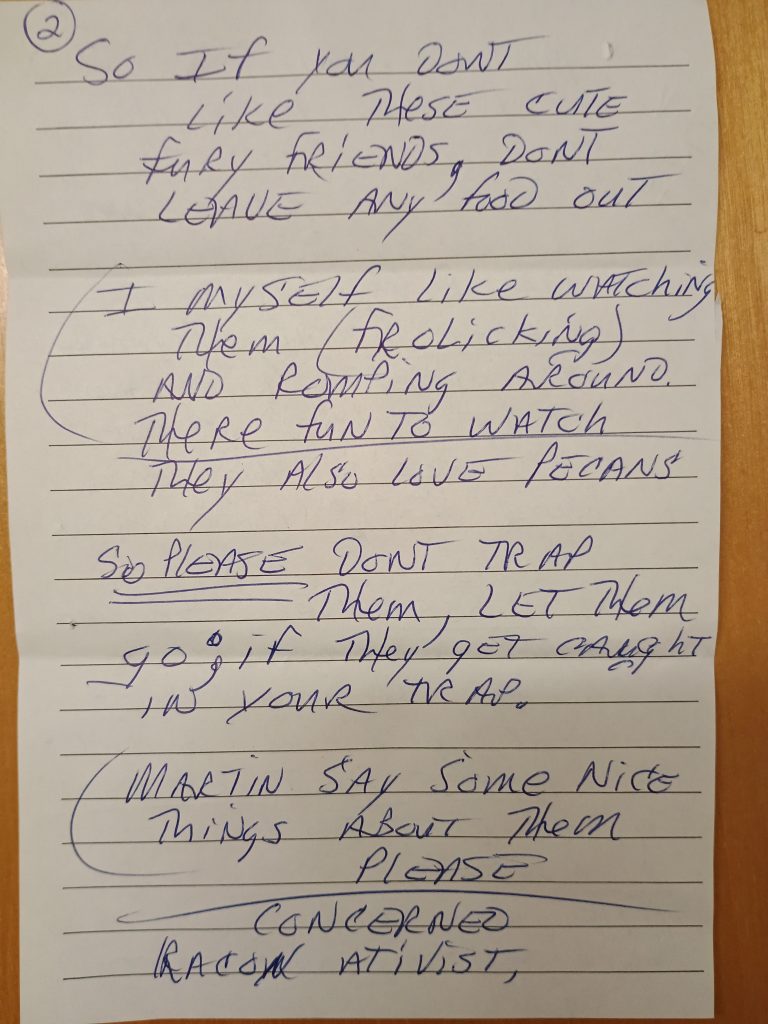 2
So If you DONT
Like THESE CUTE
fury FRIENDS, DONT
LEAVE ANY food OUT
I myself like WATChing
Them (FROLICKING)
AND ROMPING AROUND.
THeRe fun TO WATCH
They ALSO LOVE PECANS
So PLEASE DONT TRAP
Them, LET Them
go; if They GET CAUghT
IN YOUR TRAP.
MARTIN SAY Some NICE
THINGS ABOUT Them
PLEASE
CONCERNED
RACOON ATIVIST,